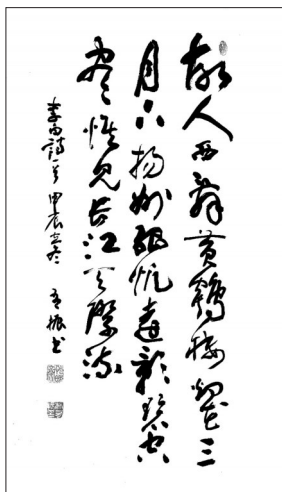 故人西辞黄鶴楼烟花三
月下揚州孤帆遠影碧空
尽惟见长江天際流
李白詩一首 甲辰 冬 振书